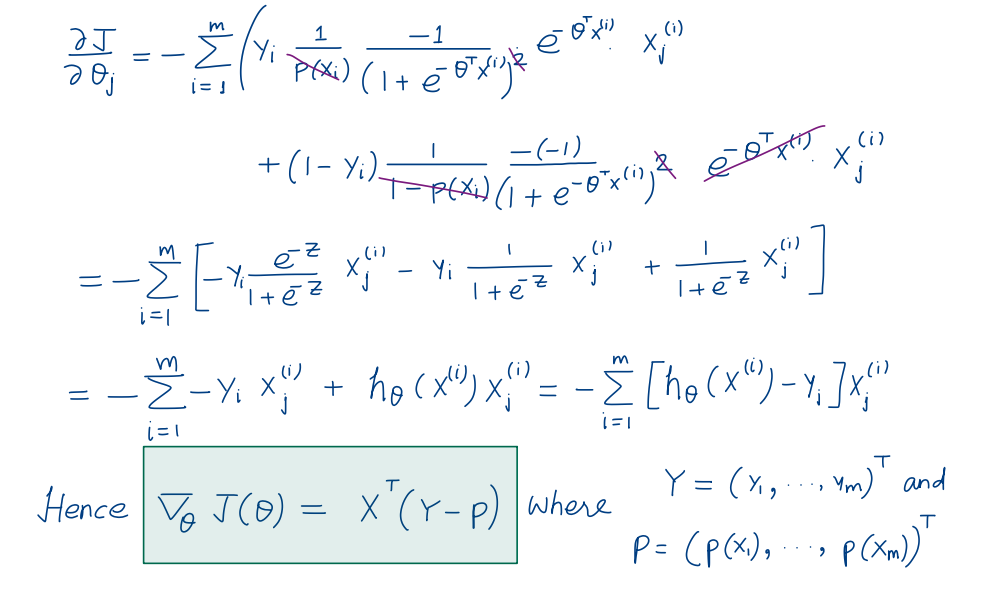 ∂J/∂θ_j = - Σ_{i=1}^{m} ( y_i 1/p(x_i) -1/(1 + e^{-θ^T x^{(i)}})^2 e^{-θ^T x^{(i)}} x_j^{(i)}
+ (1 - y_i) 1/(1 - p(x_i)) -(-1)/(1 + e^{-θ^T x^{(i)}})^2 e^{-θ^T x^{(i)}} x_j^{(i)}
= - Σ_{i=1}^{m} [ -y_i e^{-z}/(1 + e^{-z}) x_j^{(i)} - y_i 1/(1 + e^{-z}) x_j^{(i)} + 1/(1 + e^{-z}) x_j^{(i)} ]
= - Σ_{i=1}^{m} -y_i x_j^{(i)} + h_θ(x^{(i)}) x_j^{(i)} = - Σ_{i=1}^{m} [h_θ(x^{(i)}) - y_i] x_j^{(i)}
Hence ∇_θ J(θ) = X^T(Y - p) where Y = (y_1, ..., y_m)^T and
P = (p(x_1), ..., p(x_m))^T